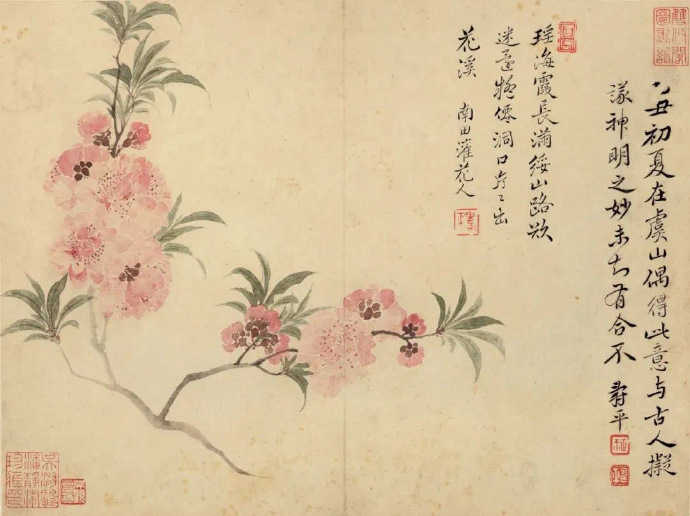 乙丑初夏在虞山偶得此意与古人擬
議神明之妙未知有合不 壽平
瑶海霞長滿綏山路欲
迷還將僊洞口片片出
花溪 南田灌花人